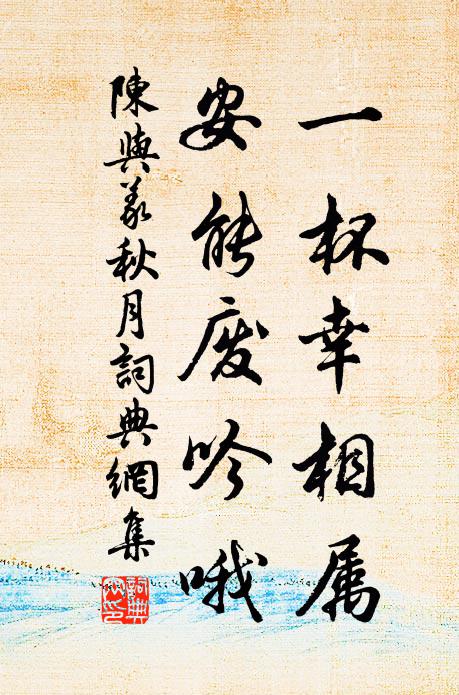 一杯幸相属
安能废吟哦
陳與義秋月詞典網集